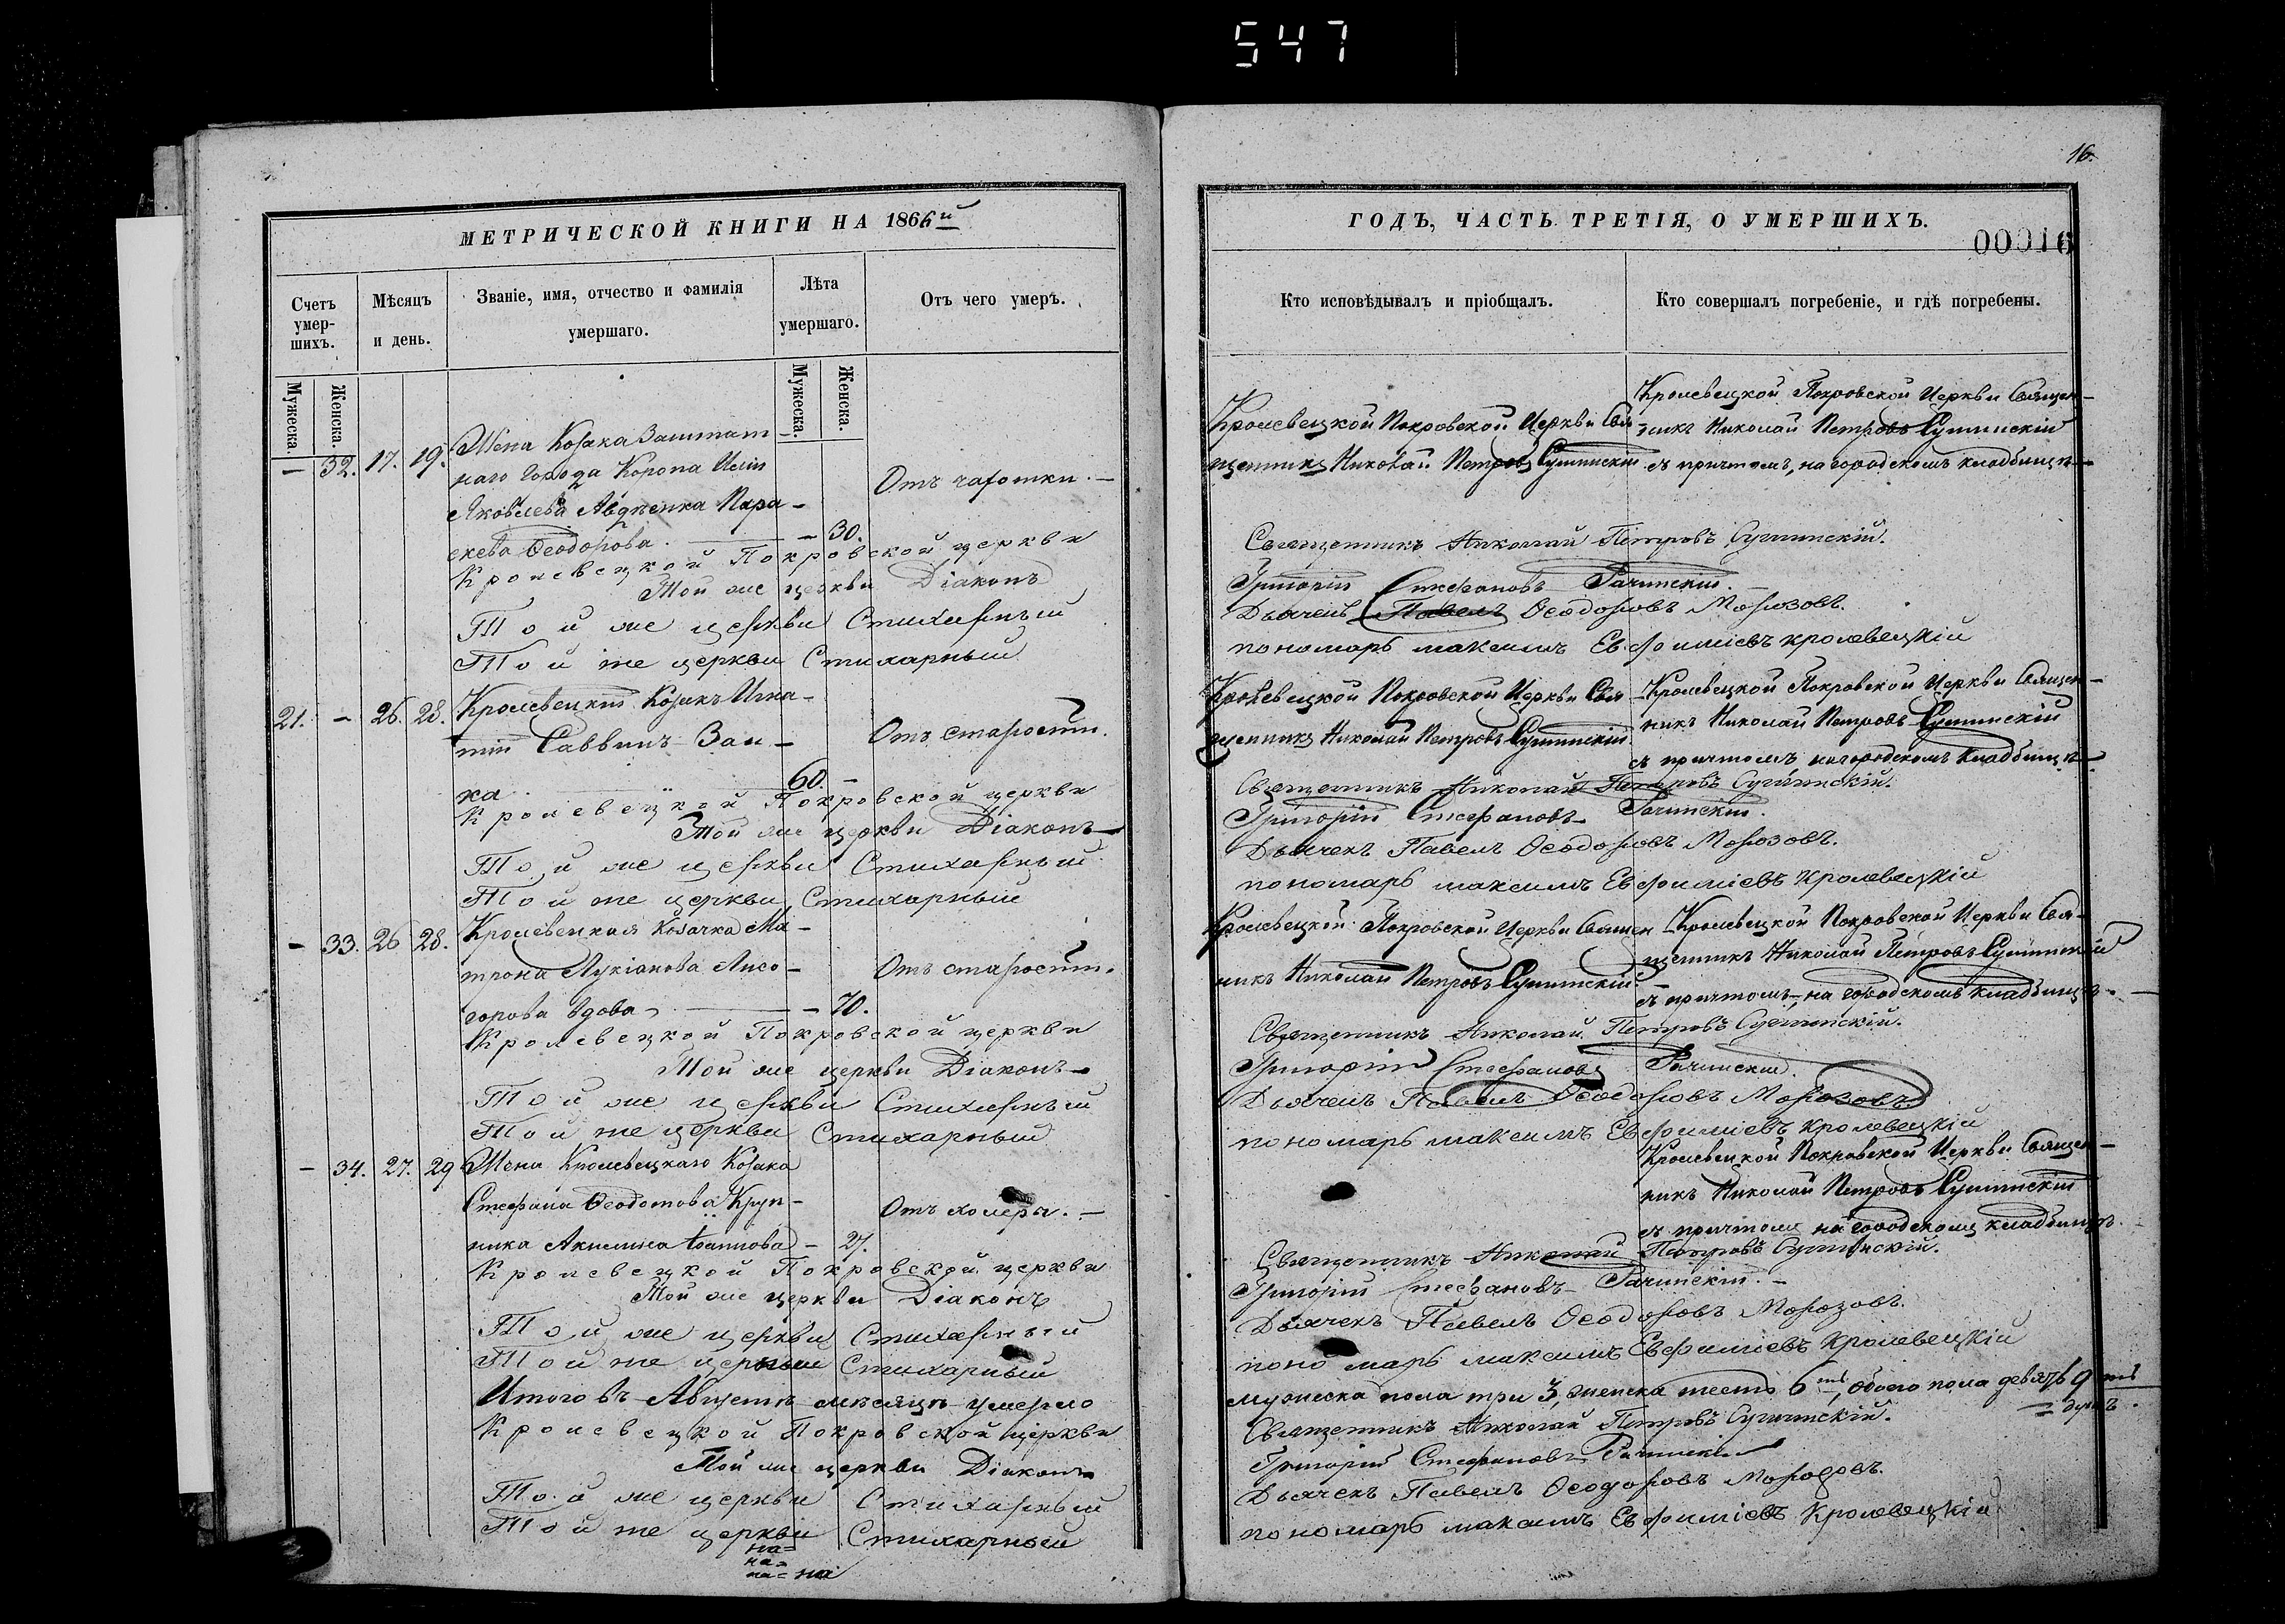 547
16.
МЕТРИЧЕСКОЙ КНИГИ НА 1866й
ГОДЪ, ЧАСТЬ ТРЕТІЯ, О УМЕРШИХЪ.
00016
Счетъ умер-шихъ.
Мѣсяцъ и день.
Званіе, имя, отчество и фамилія умершаго.
Лѣта умершаго.
Отъ чего умеръ.
Кто исповѣдывалъ и пріобщалъ.
Кто совершалъ погребеніе, и гдѣ погребены.
Мужеска.
Женска.
Мужеска.
Женска.
— 32. 17. 19. Жена Козака Заштат
наго Города Коропа Иліи
Яковлева Авдѣенка Пара-
скева Ѳеодорова. — 30.
Отъ чахотки. —
Кролевецкой Покровской Церкви Свя-
щенникъ Николай Петровъ Сулимскій
Кролевецкой Покровской Церкви Священ-
никъ Николай Петровъ
съ причтомъ, на городскомъ кладбищѣ —
Кролевецкой Покровской церкви Священникъ Николай Петровъ
Той же церкви Діаконъ Григорій Стефановъ Рачинскій
Той же церкви Стихарный Дьячекъ Павелъ Ѳеодоровъ Морозовъ.
Той же церкви Стихарный пономарь максимъ Евфиміевъ кролевецкій
21. — 26. 28. Кролевецкій Козакъ Игна-
тій Саввинъ Заи-
ка 60. —
Отъ старости.
Кролевецкой Покровской Церкви Свя-
щенникъ Николай Петровъ
Кролевецкой Покровской Церкви Священ-
никъ Николай Петровъ
съ причтомъ, на городскомъ кладбищѣ —
Кролевецкой Покровской церкви Священникъ Николай Петровъ
Той же церкви Діаконъ — Григорій Стефановъ Рачинскій.
Той же церкви Стихарный Дьячекъ Павелъ Ѳеодоровъ Морозовъ.
Той же церкви Стихарный пономарь максимъ Евфиміевъ Кролевецкій
— 33. 26 28. Кролевецкая Козачка Ма-
трона Лукіанова Лисо-
горова вдова — 70.
Отъ старости.
Кролевецкой Покровской Церкви Священ
никъ Николай Петровъ
Кролевецкой Покровской Церкви Свя-
щенникъ Николай Петровъ
съ причтомъ, на городскомъ кладбищѣ. —
Кролевецкой Покровской церкви Священникъ Николай Петровъ
Той же церкви Діаконъ — Григорій Стефановъ Рачинскій.
Той же церкви Стихарный Дьячекъ Павелъ Ѳеодоровъ Морозовъ
Той же церкви Стихарный пономарь максимъ Евфиміевъ Кролевецкій
— 34. 27. 29 Жена Кролевецкаго Козака
Стефана Ѳеодотова Круп-
ника Акилина Іоаннова — 27.
Отъ холеры. —
Кролевецкой Покровской Церкви Священ-
никъ Николай Петровъ
съ причтомъ на городскомъ кладбищѣ.
Кролевецкой Покровской церкви Священникъ Николай Петровъ
Той же церкви Діаконъ Григорій Стефановъ Рачинскій. —
Той же церкви Стихарный Дьячекъ Павелъ Ѳеодоровъ Морозовъ.
Той же церкви Стихарный пономарь максимъ Евфиміевъ Кролевецкій
Итого въ Августѣ мѣсяцѣ умерло мужеска пола три 3, женска шесть 6ть, обоего пола девять 9ть
душъ.
Кролевецкой Покровской церкви Священникъ Николай Петровъ
Той же церкви Діаконъ Григорій Стефановъ Рачинскій
Той же церкви Стихарный Дьячекъ Павелъ Ѳеодоровъ Морозовъ.
Той же церкви Стихарный пономарь максимъ Евфиміевъ Кролевецкій
на=
на=
на= на